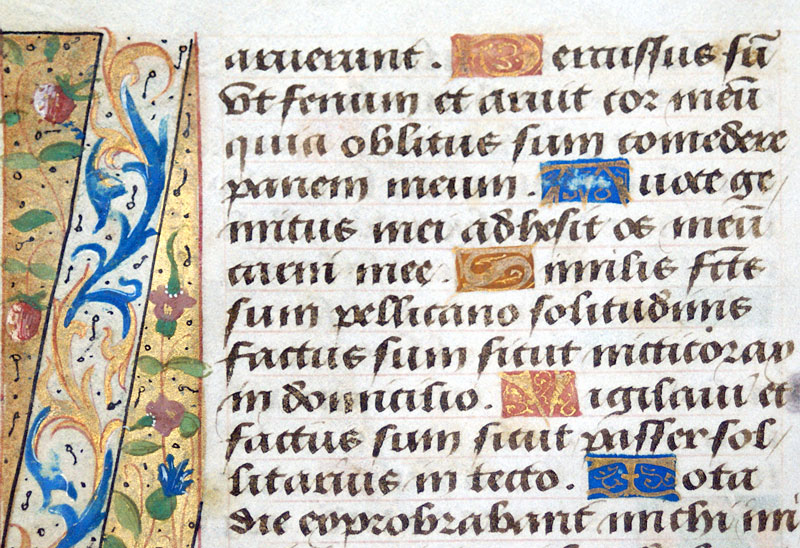 aruerunt. Percussus sū
Vt fenum et aruit cor meū
quia oblitus sum comedere
panem meum. A uoce ge
mitus mei adhesit os meū
carni mee. Similis fc̄ts
sum pellicano solitudinis
factus sum sicut nicticorax
in domicilio. Vigilaui et
factus sum sicut passer sol
litarius in tecto. Tota
die exprobrabant michi ini